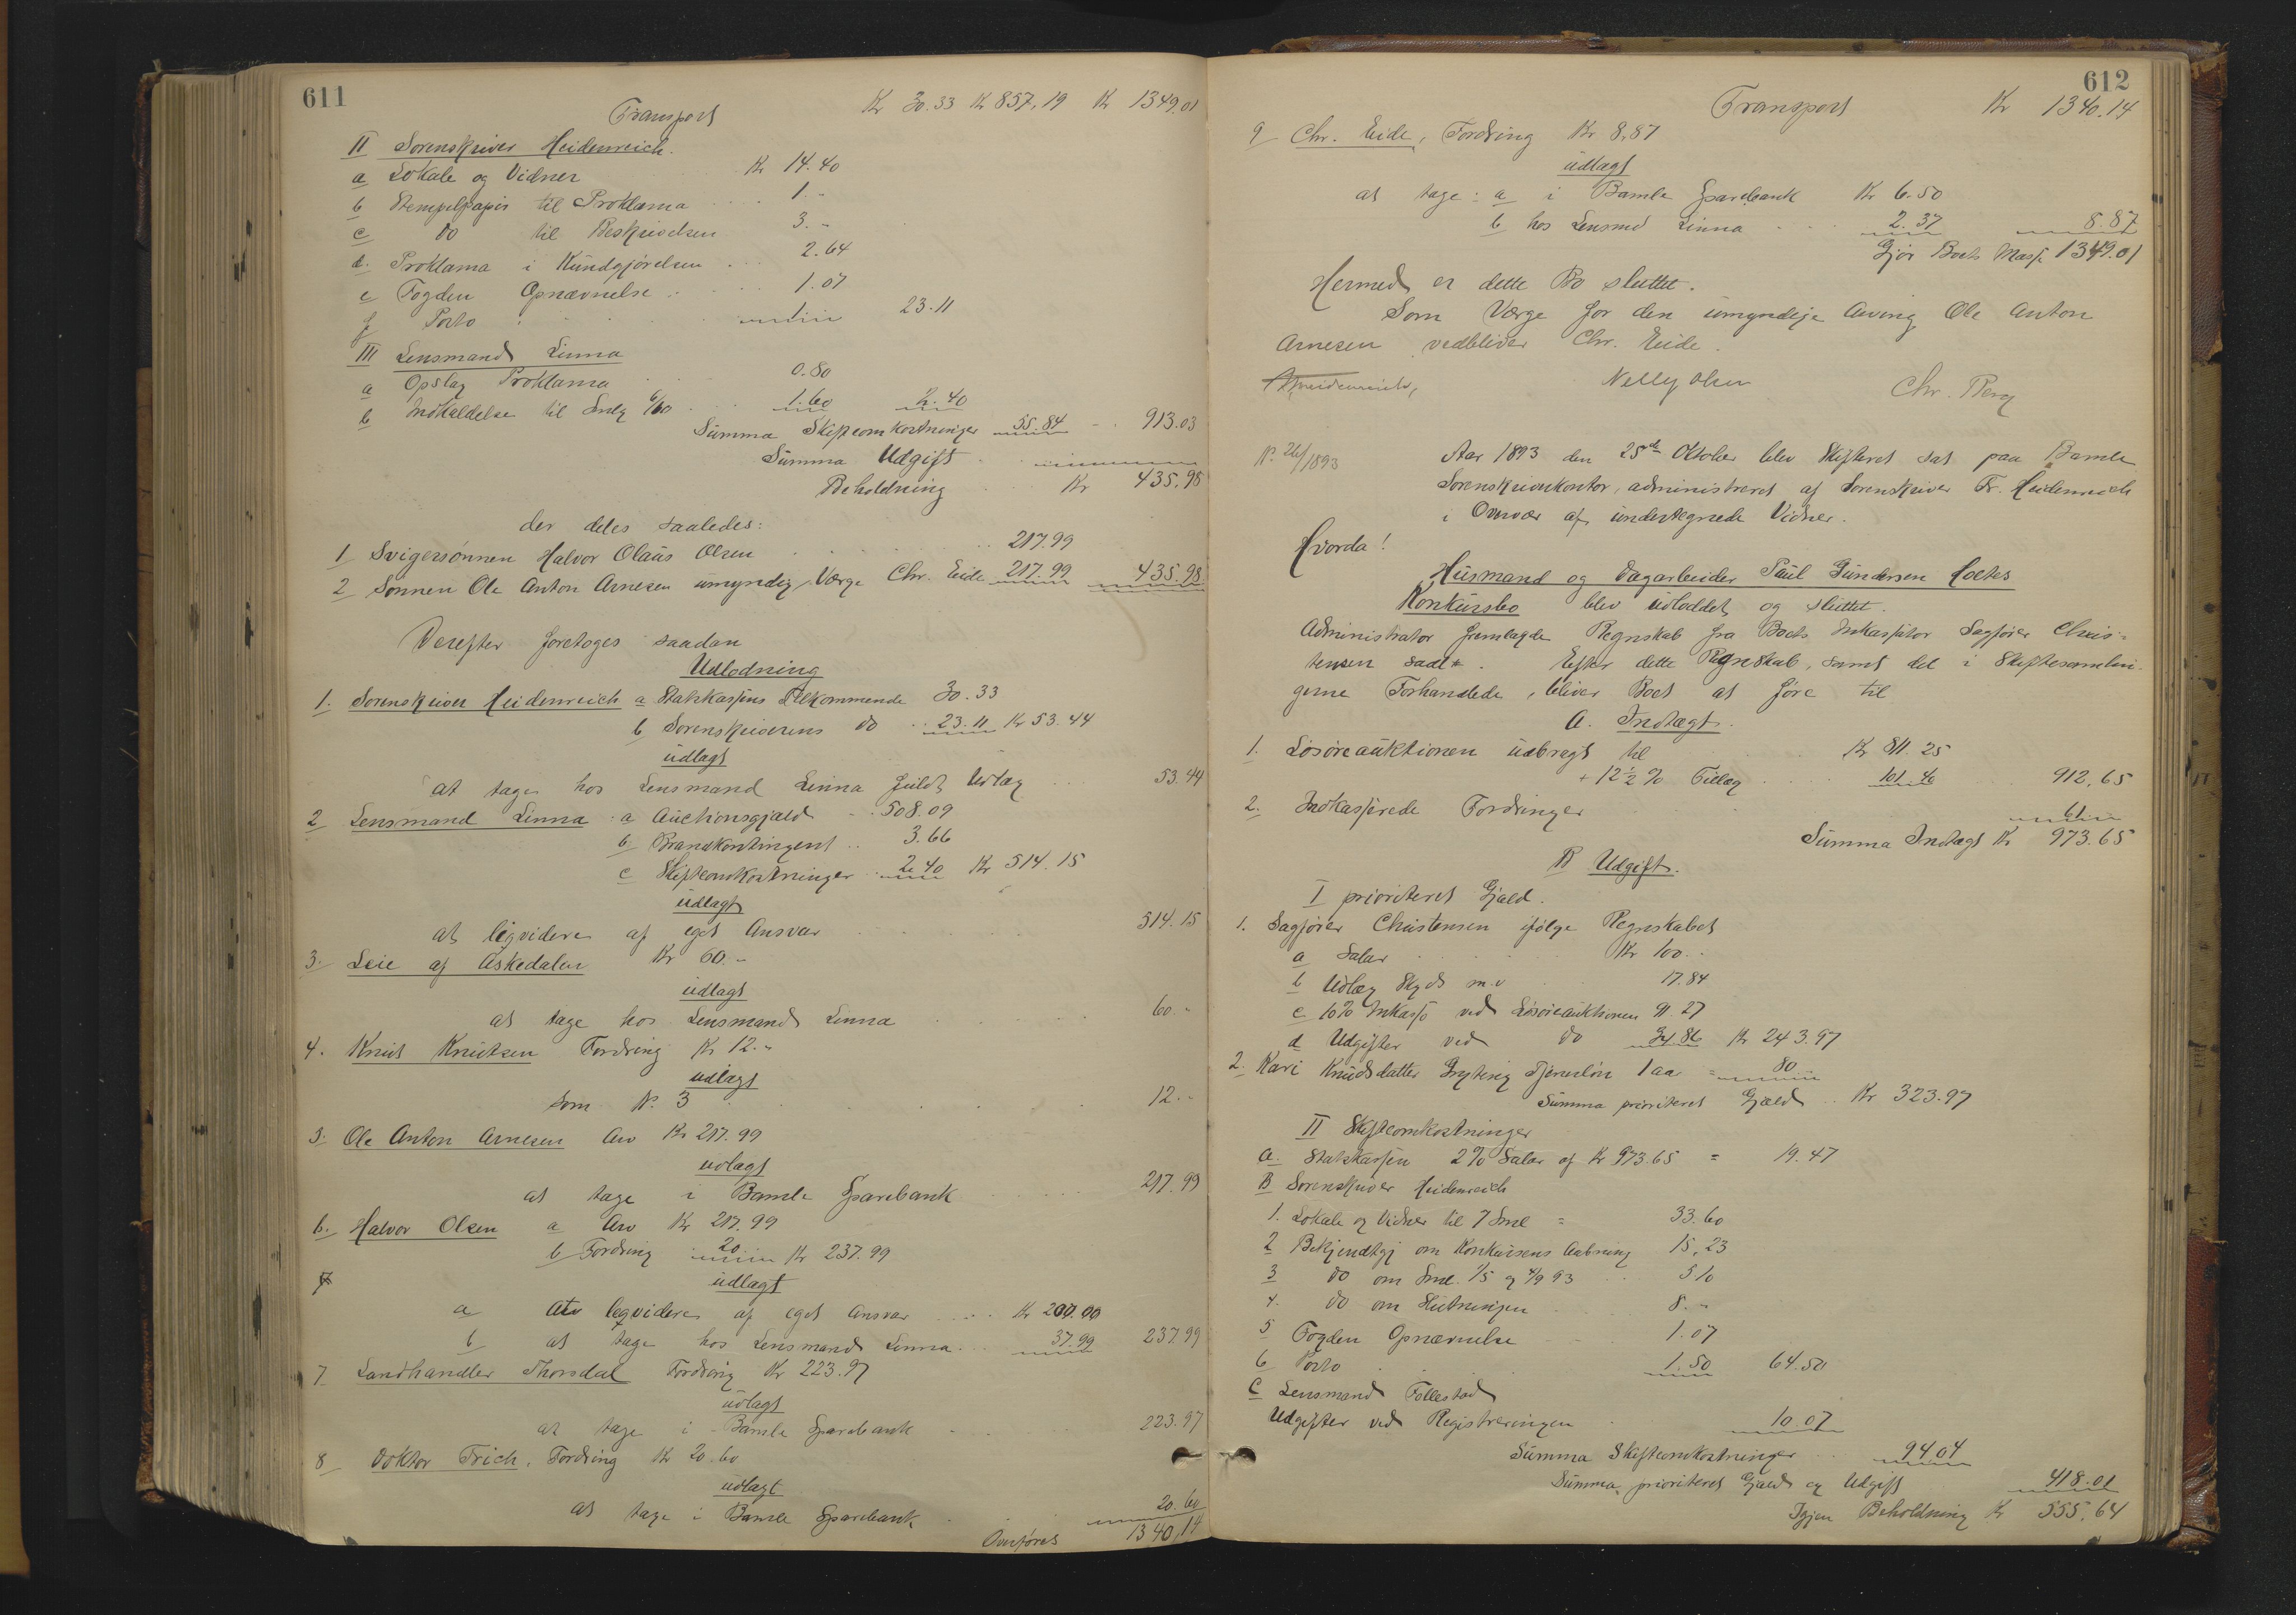 611
Transport Kr 30.33 Kr 857,19 Kr 1349.01
II Sorenskriver Heidenreich.
a Lokale og Vidner Kr 14.40
b Stempelpapir til Proklama 1.-
c do til Beskrivelsen 3.-
d. Proklama i Kundgjørelsen 2.64
e Fogden Opnævnelse 1.07
f Porto 1 23.11
III Lensmand Linna
a Opslag Proklama 0.80
b Indkaldelse til Smlg 1.60 2.40
Summa Skifteomkostninger 55.84 913.03
Summa Udgift
Beholdning Kr 435,98
der deles saaledes:
1 Svigersønnen Halvor Olaus Olsen 217.99
2 Sønnen Ole Anton Arnesen umyndig, Værge Chr. Eide 217.99 435.98
Derefter foretoges saadan
Udlodning
1. Sorenskriver Heidenreich a Statskassens Tilkommende 30.33
b Sorenskriverens do 23.11 Kr 53.44
udlagt
at tage hos Lensmand Linna fuldt Udlæg 53.44
2 Lensmand Linna: a Auctionsgjæld 508.09
b Brandkontingent 3.66
c Skifteomkostninger 2.40 Kr 514.15
udlagt
at liqvidere af eget Ansvar 514.15
3. Leie af Askedalen Kr 60.-
udlagt
at tage hos Lensmand Linna 60.-
4. Knut Knutsen Fordring Kr 12.-
udlagt
som N. 3 12.-
5. Ole Anton Arnesen Arv Kr 217.99
udlagt
at tage i Bamle Sparebank 217.99
6. Halvor Olsen a Arv Kr 217.99
b Fordring 20 Kr 237.99
7 udlagt
a at liqvidere af eget Ansvar Kr 200.00
b at tage hos Lensmand Linna 37.99 237.99
7 Landhandler Thorsdal Fordring Kr 223.97
udlagt
at tage i Bamle Sparebank 223.97
8 Doktor Frich, Fordring Kr 20.60
udlagt
at tage i Bamle Sparebank 20.60
Overføres 1340,14
612
Transport Kr 1340.14
9 Chr. Eide, Fordring Kr 8,87
udlagt
at tage: a i Bamle Sparebank Kr 6.50
b hos Lensmd Linna 2.37 8.87
Gjør Boets Masse 1349.01
Hermed er dette Bo sluttet.
Som Værge for den umyndige Arving Ole Anton
Arnesen vedbliver Chr. Eide.
Heidenreich, Nelly Olsen Chr. Berg
N. 26/1893 Aar 1893 den 25de Oktober blev Skifteret sat paa Bamle
Sorenskriverkontor, administreret af Sorenskriver Fr. Heidenreich
i Overvær af undertegnede Vidner.
Hvorda!
Husmand og Dagarbeider Paul Gundersen Holtes
Konkursbo blev udloddet og sluttet.
Administrator fremlagde Regnskab fra Boets Inkassator Sagfører Chris-
tensen Efter dette Regnskab, samt det i Skiftesamlin-
gerne Forhandlede, bliver Boet at føre til
A. Indtægt.
1. Løsøreauktionen udbragt til Kr 811.25
+ 12 1/2 % Tillæg 101.40 912,65
2. Indkasserede Fordringer 61
Summa Indtægt Kr 973.65
B Udgift.
I prioriteret Gjæld.
1. Sagfører Christensen ifølge Regnskabet
a Salar Kr 100.-
b Udlæg Skyds m.v 17.84
c 10% Inkasso ved Løsøreauktionen 91.27
d Udgifter ved do 34.86 Kr 243.97
2. Kari Knudsdatter Tjenerløn 1 aar = 80
Summa prioriteret Gjæld Kr 323.97
II Skifteomkostninger
A. Statskassen 2% Salar af Kr 973.65 = 19.47
B Sorenskriver Heidenreich
1. Lokale og Vidner til 7 Sml = 33.60
2 Bekjendtgj om Konkursens Aabning 15,23
3 do om Sml. 1/5 og 4/9 93 5 10
4. do om Slutningen 8.-
5 Fogden Opnævnelse 1.07
6 Porto 1.50 64.50
C Lensmand Follestad
Udgifter ved Registreringen 10.07
Summa Skifteomkostninger 94.04
Summa prioriteret Gjæld og Udgift 418.01
Igjen Beholdning Kr 555,64